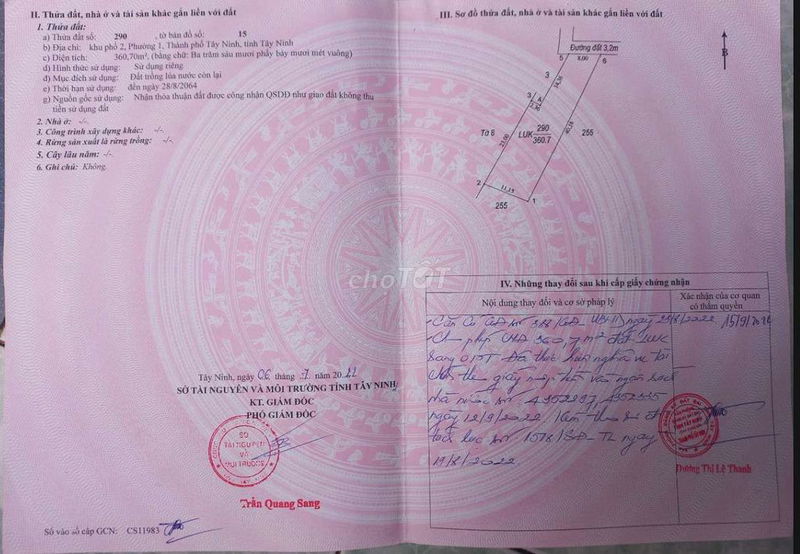 II. Thửa đất, nhà ở và tài sản khác gắn liền với đất
1. Thửa đất:
a) Thửa đất số: 290 , tờ bản đồ số: 15
b) Địa chỉ: khu phố 2, Phường 1, Thành phố Tây Ninh, tỉnh Tây Ninh
c) Diện tích: 360,70m², (bằng chữ: Ba trăm sáu mươi phẩy bảy mươi mét vuông)
d) Hình thức sử dụng: Sử dụng riêng
đ) Mục đích sử dụng: Đất trồng lúa nước còn lại
e) Thời hạn sử dụng: đến ngày 28/8/2064
g) Nguồn gốc sử dụng: Nhận thỏa thuận đất được công nhận QSDĐ như giao đất không thu
tiền sử dụng đất
2. Nhà ở: -/-
3. Công trình xây dựng khác: -/-
4. Rừng sản xuất là rừng trồng: -/-
5. Cây lâu năm: -/-
6. Ghi chú: Không.
Tây Ninh, ngày 06 tháng 7 năm
SỞ TÀI NGUYÊN VÀ MÔI TRƯỜNG TỈNH TÂY NINH
KT. GIÁM ĐỐC
PHÓ GIÁM ĐỐC
SỞ
TÀI NGUYÊN
VÀ
MÔI TRƯỜNG
Trần Quang Sang
Số vào sổ cấp GCN: CS11983
III. Sơ đồ thửa đất, nhà ở và tài sản khác gắn liền với đất
Đường đất 3,2m
B
5
8,00
6
3
3
4
Tờ 8
LUK
290
360.7
40,16
255
23,00
2
11,15
1
255
choTỐT
IV. Những thay đổi sau khi cấp giấy chứng nhận
Nội dung thay đổi và cơ sở pháp lý
Xác nhận của cơ quan
có thẩm quyền
Căn cứ QĐ số ngày /8/2022
Cho phép 360,7 m² đất LUK
sang ODT Đã thực hiện nghĩa vụ tài
chính theo giấy nộp tiền vào ngân sách
nhà nước số
ngày 12/9/2022
số ngày
19/8/2022
15/9/
Dương Thị Lệ Thanh